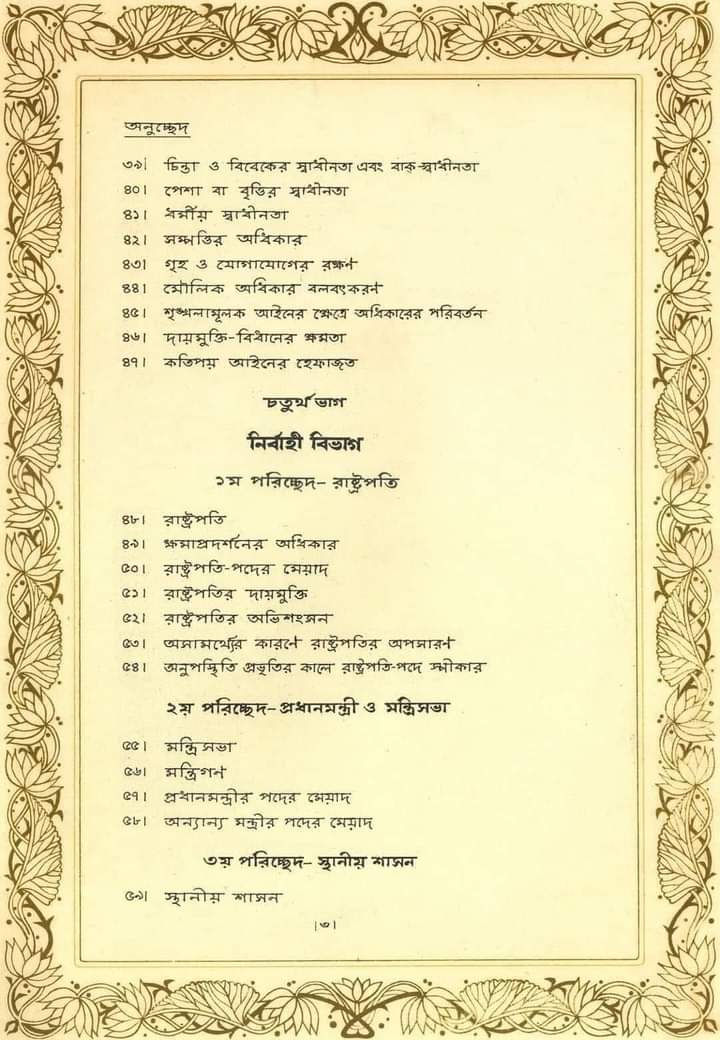 অনুচ্ছেদ
৩৯৷ চিন্তা ও বিবেকের স্বাধীনতা এবং বাক্-স্বাধীনতা
৪০৷ পেশা বা বৃত্তির স্বাধীনতা
৪১৷ ধর্মীয় স্বাধীনতা
৪২৷ সম্পত্তির অধিকার
৪৩৷ গৃহ ও যোগাযোগের রক্ষণ
৪৪৷ মৌলিক অধিকার বলবৎকরণ
৪৫৷ শৃঙ্খলামূলক আইনের ক্ষেত্রে অধিকারের পরিবর্তন
৪৬৷ দায়মুক্তি-বিধানের ক্ষমতা
৪৭৷ কতিপয় আইনের হেফাজত
চতুর্থ ভাগ
নির্বাহী বিভাগ
১ম পরিচ্ছেদ- রাষ্ট্রপতি
৪৮৷ রাষ্ট্রপতি
৪৯৷ ক্ষমাপ্রদর্শনের অধিকার
৫০৷ রাষ্ট্রপতি-পদের মেয়াদ
৫১৷ রাষ্ট্রপতির দায়মুক্তি
৫২৷ রাষ্ট্রপতির অভিশংসন
৫৩৷ অসামর্থ্যের কারণে রাষ্ট্রপতির অপসারণ
৫৪৷ অনুপস্থিতি প্রভৃতির কালে রাষ্ট্রপতি-পদে স্পীকার
২য় পরিচ্ছেদ- প্রধানমন্ত্রী ও মন্ত্রিসভা
৫৫৷ মন্ত্রিসভা
৫৬৷ মন্ত্রিগণ
৫৭৷ প্রধানমন্ত্রীর পদের মেয়াদ
৫৮৷ অন্যান্য মন্ত্রীর পদের মেয়াদ
৩য় পরিচ্ছেদ- স্থানীয় শাসন
৫৯৷ স্থানীয় শাসন
৷৩৷